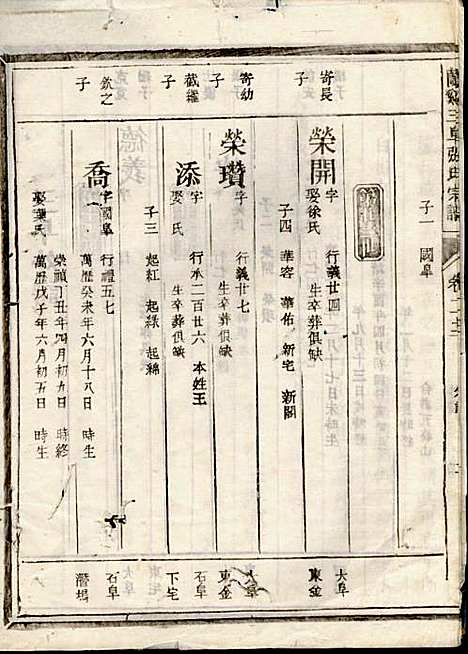 蘭谿三阜張氏宗譜 卷二十二
子一 國阜
寄長子
榮開
字
娶徐氏
行義廿四
生卒葬俱缺
子四 華容 華佑 新宅 新閣
大阜
東金
寄幼子
榮瓚
字
行義廿七
生卒葬俱缺
大阜
東金
截繼子
添
字
娶 氏
行承二百廿六 本姓王
生卒葬俱缺
子三 起紅 起綠 起綿
石阜
下宅
欽之子
喬
字國阜 行禮五七
萬歷癸未年六月十八日 時生
崇禎丁丑年四月初九日 時終
娶葉氏
萬歷戊子年六月初五日 時生
石阜
潛塢